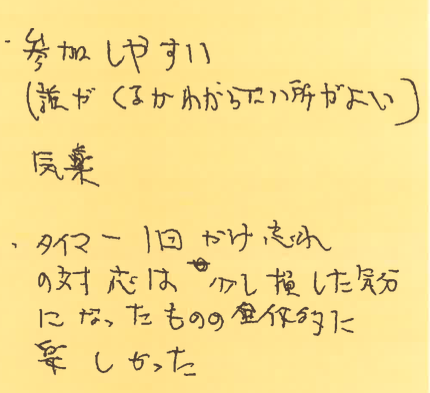 ・参加しやすい
(誰がくるかわからない所がよい)
気楽
・タイマー1回かけ忘れ
の対応は 少し損した気分
になったものの全体的に
楽しかった